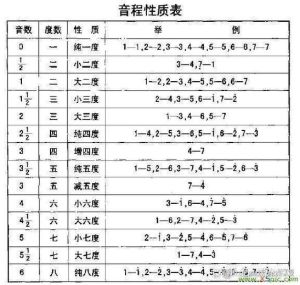 音程性质表
音数 度数 性质 举例
0 一 纯一度 1—1,2—2,3—3,4—4,5—5,6—6,7—7
1/2 二 小二度 3—4,7—1
1 二 大二度 1—2,2—3,4—5,5—6,6—7
1 1/2 三 小三度 2—4,3—5,6—i,7—2̇
2 三 大三度 1—3,4—6,5—7
2 1/2 四 纯四度 1—4,2—5,3—6,5—i,6—2̇,7—3̇
3 四 增四度 4—7
3 1/2 五 纯五度 1—5,2—6,3—7,4—i,5—2̇,6—3̇
3 五 减五度 7—4̇
4 六 小六度 3—i,6—4̇,7—5̇
4 1/2 六 大六度 1—6,2—7,4—2̇,5—3̇
5 七 小七度 2—i,3—2̇,5—4̇,6—5̇,7—6̇
5 1/2 七 大七度 1—7,4—3̇
6 八 纯八度 1—i,2—2̇,3—3̇,4—4̇